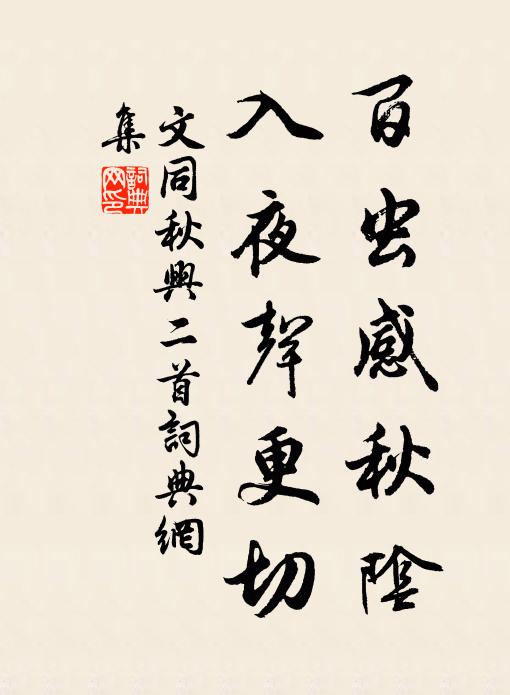 百虫感秋陰
入夜聲更切
文同秋興二首詞典網
集
詞典
网印